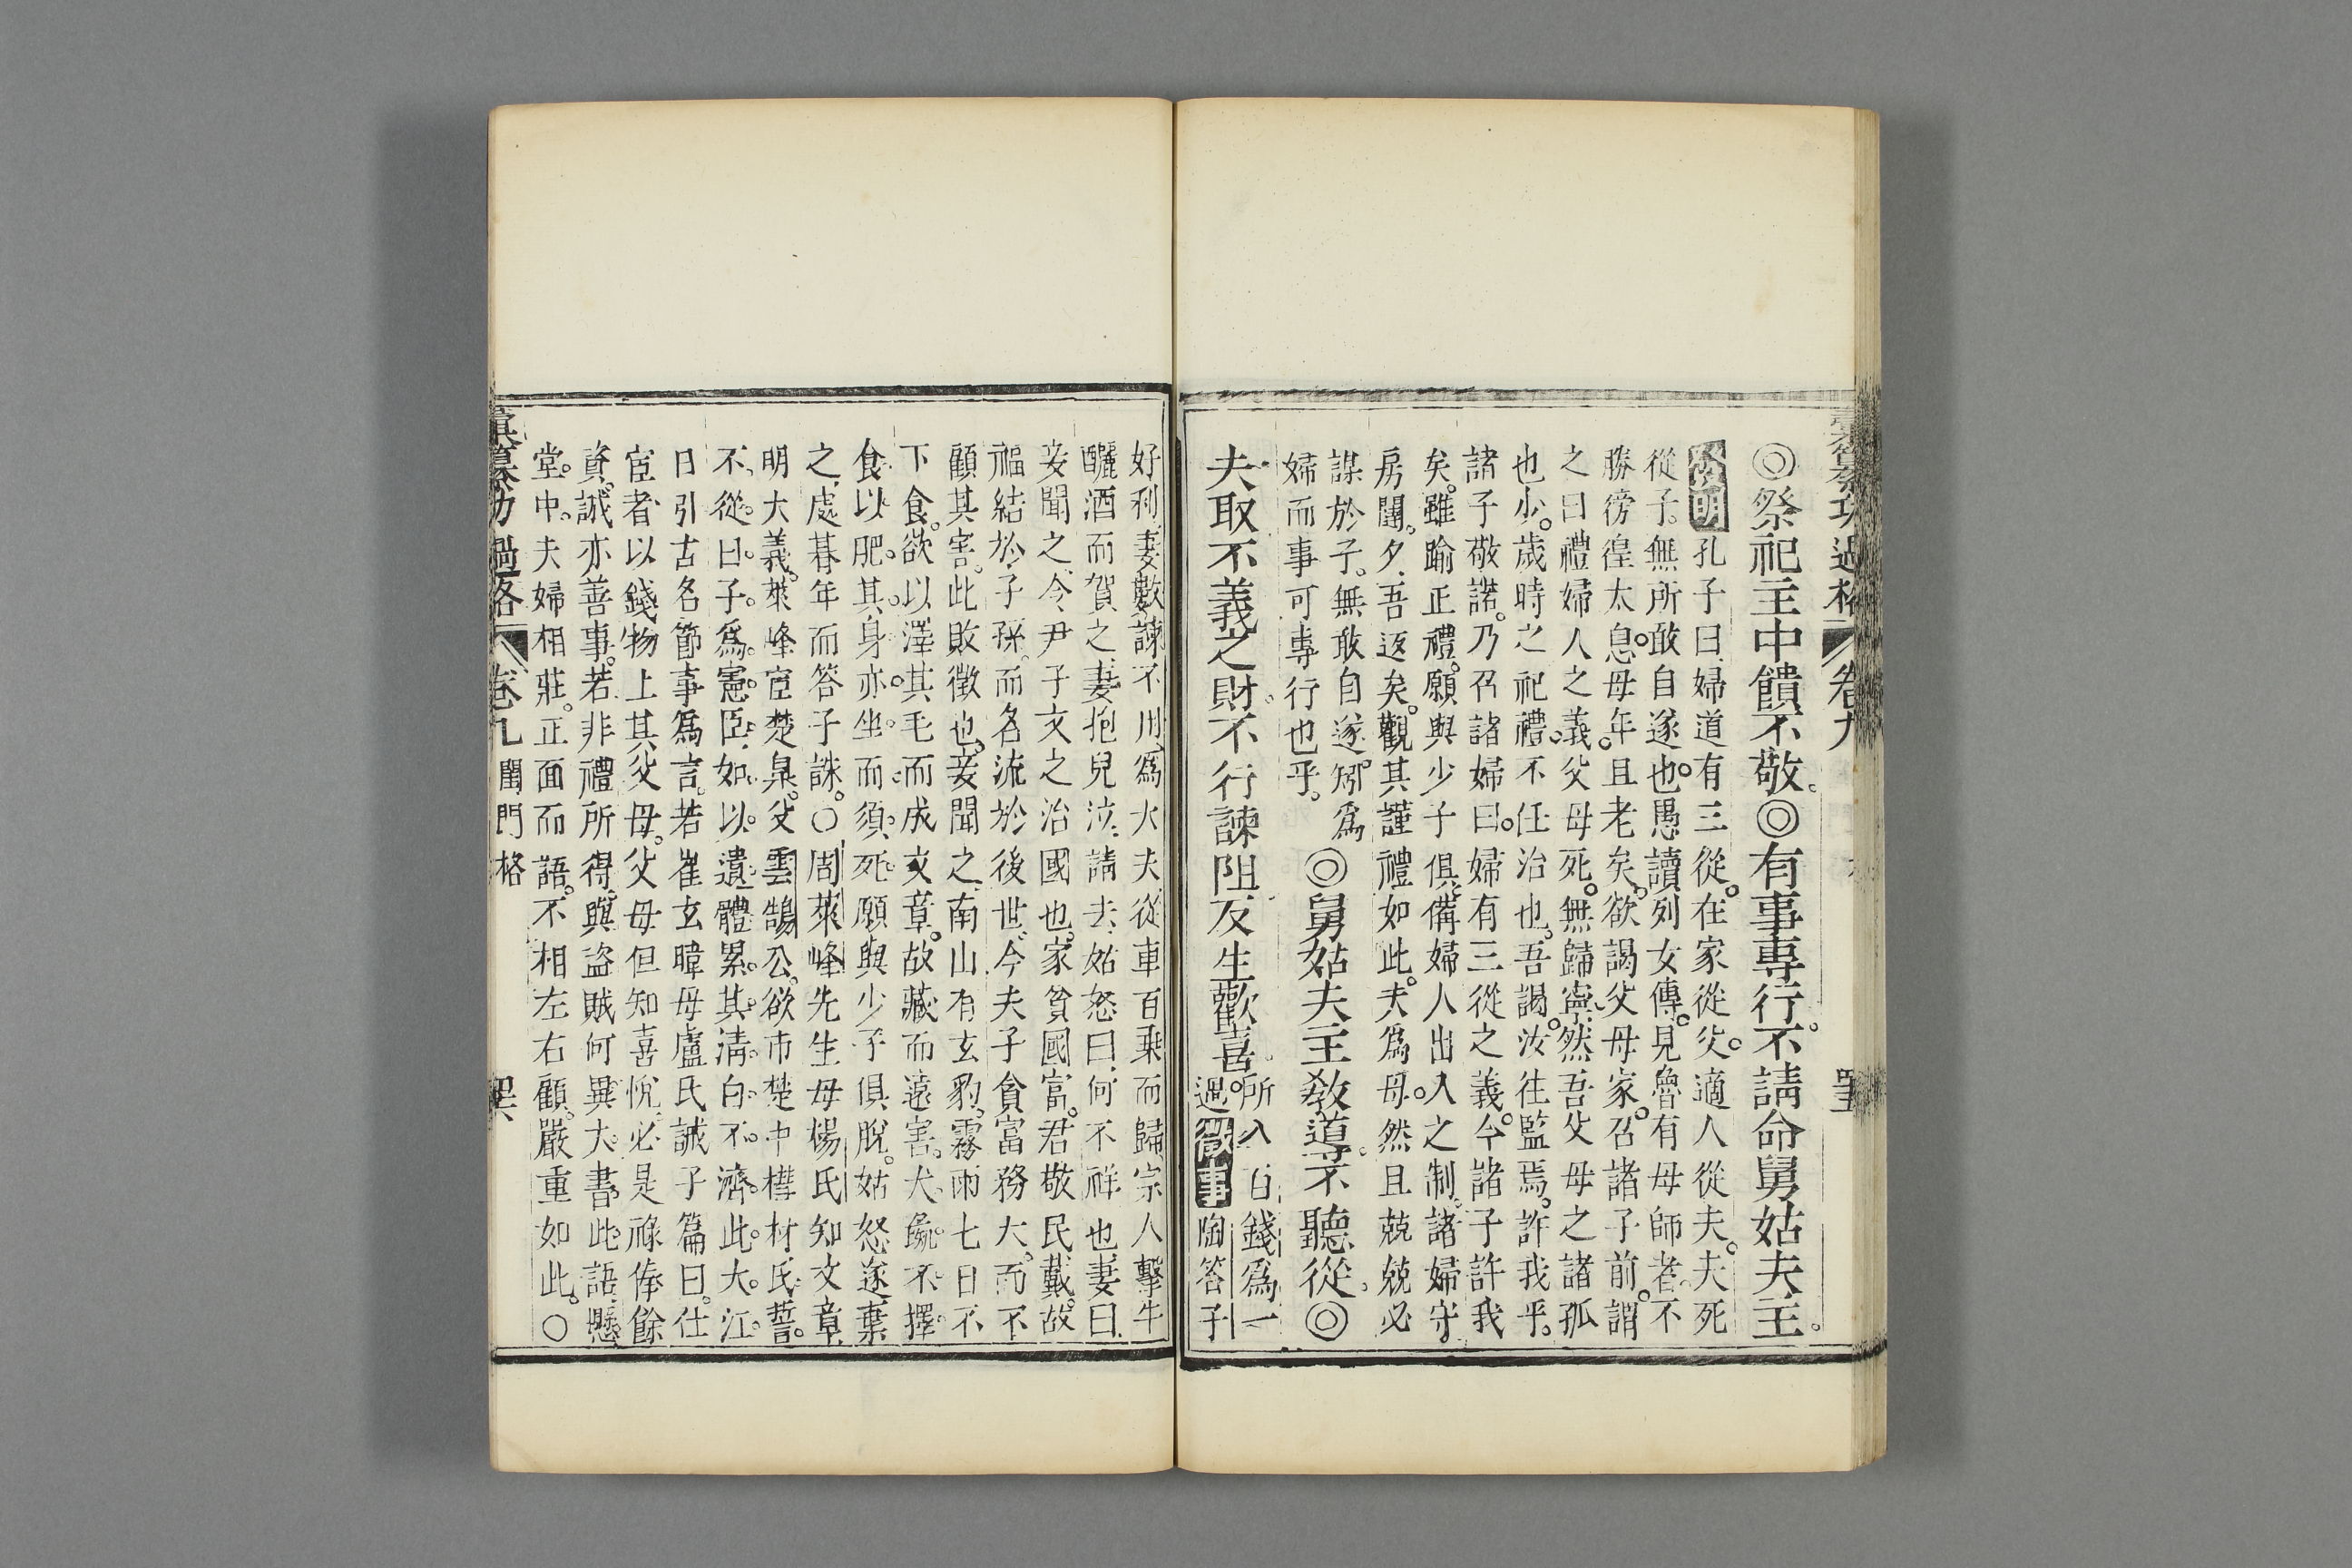 彙纂功過格 卷九 四十五
◎祭祀主中饋不敬。◎有事專行。不請命舅姑夫主。
發明 孔子曰。婦道有三從。在家從父。適人從夫。夫死
從子。無所敢自遂也。愚讀列女傳。見魯有母師者。不
勝徬徨太息。母年且老矣。欲謁父母家。召諸子前。謂
之曰禮婦人之義。父母死。無歸寧。然吾父母之諸孤
也少。歲時之祀禮。不任治也。吾謁。汝往監焉。許我乎。
諸子敬諾。乃召諸婦曰。婦有三從之義。今諸子許我
矣。雖踰正禮。願與少子俱。備婦人出入之制。諸婦守
房闈。夕吾返矣。觀其謹禮如此。夫為母。然且兢兢必
謀於子。無敢自遂。矧為
婦而事可專行也乎。
◎舅姑夫主教導。不聽從。◎
夫取不義之財。不行諫阻。反生歡喜。
所入百錢為一
過 徵事 陶答子
好利。妻數諫不用。為大夫從車百乘而歸。宗人擊牛
釃酒而賀之。妻抱兒泣。請去。姑怒曰。何不祥也。妻曰。
妾聞之。今尹子文之治國也。家貧國富。君敬民戴。故
福結於子孫。而名流於後世。今夫子貪富務大。而不
顧其害。此敗徵也。妾聞之。南山有玄豹。霧雨七日不
下食。欲以澤其毛而成文章。故藏而遠害。犬彘不擇
食以肥其身。亦坐而須死。願與少子俱脫。姑怒逐棄
之。處暮年而答子誅。○周萊峰先生母楊氏知文章
明大義。萊峰宦楚臬。父雲鵠公。欲市楚中櫘材。氏誓
不從。曰。子為憲臣。如以遺體累其清白。不濟此大江。
日引古名節事為言。若崔玄暐母盧氏誡子篇曰。仕
宦者以錢物上其父母。父母但知喜悅。必是祿俸餘
資。誠亦善事。若非禮所得。與盜賊何異。大書此語。懸
堂中。夫婦相莊。正面而語。不相左右顧。嚴重如此。○
彙纂功過格 卷九 閨門格 四十六